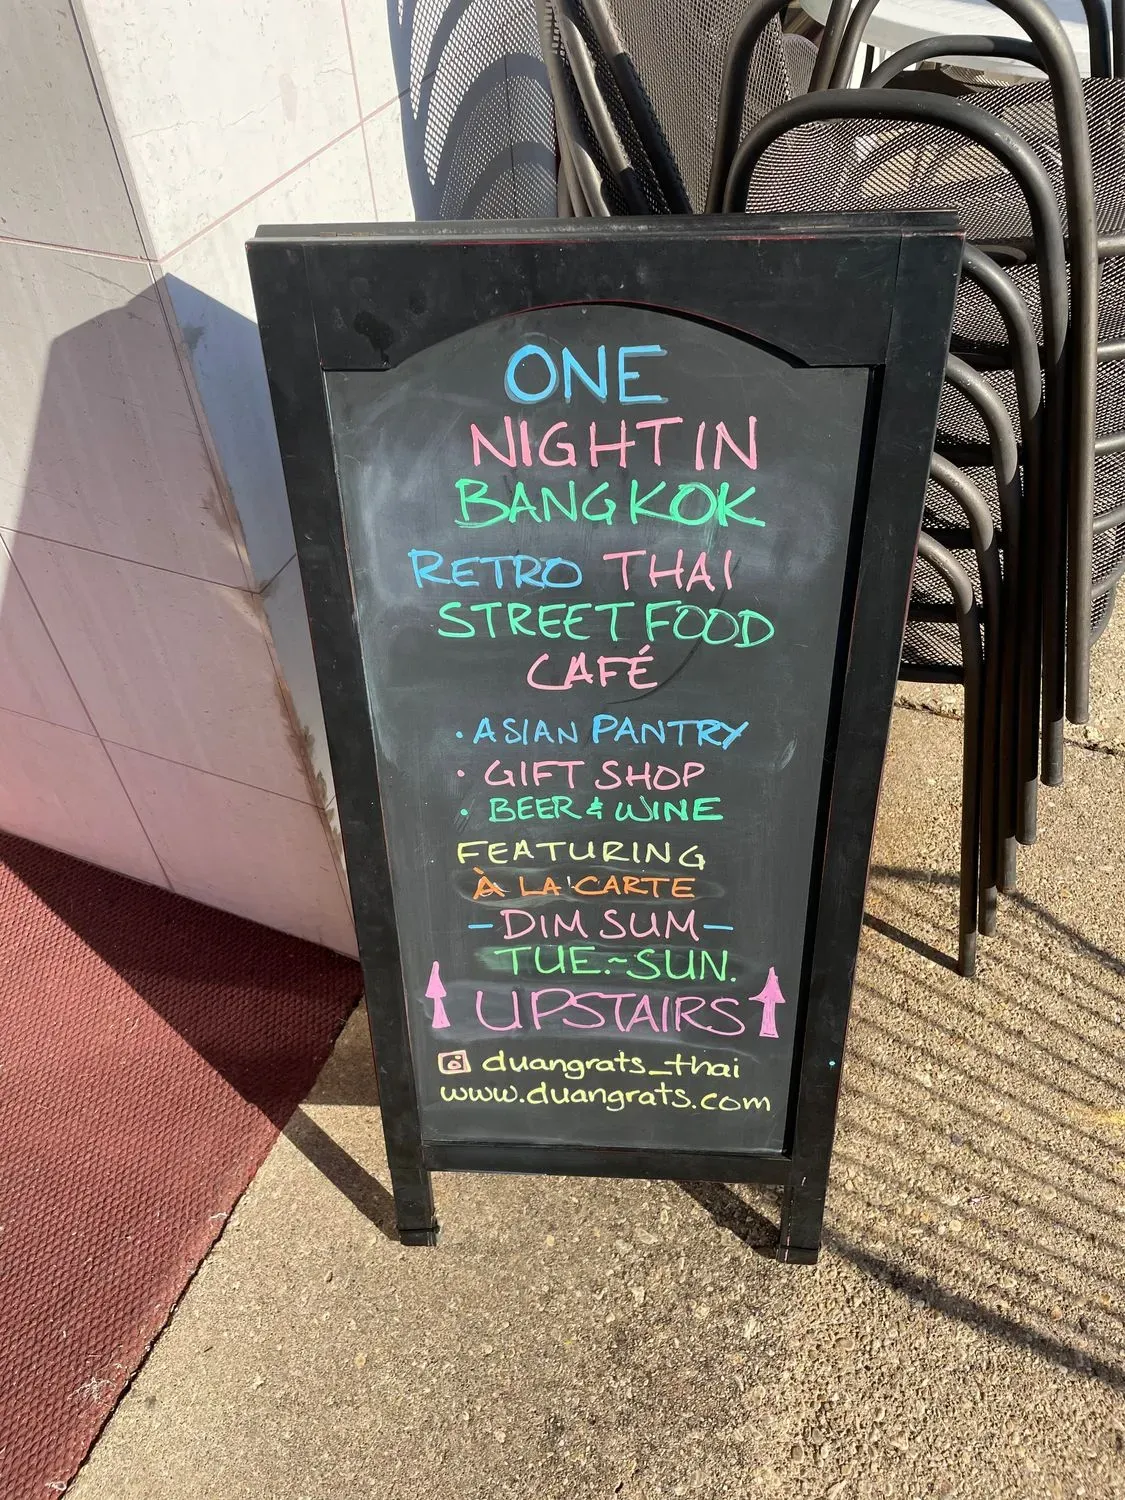 ONE
NIGHT IN
BANGKOK
RETRO THAI
STREET FOOD
CAFÉ
• ASIAN PANTRY
• GIFT SHOP
• BEER & WINE
FEATURING
À LA'CARTE
–DIM SUM–
TUE.~SUN.
UPSTAIRS
duangrats_thai
www.duangrats.com